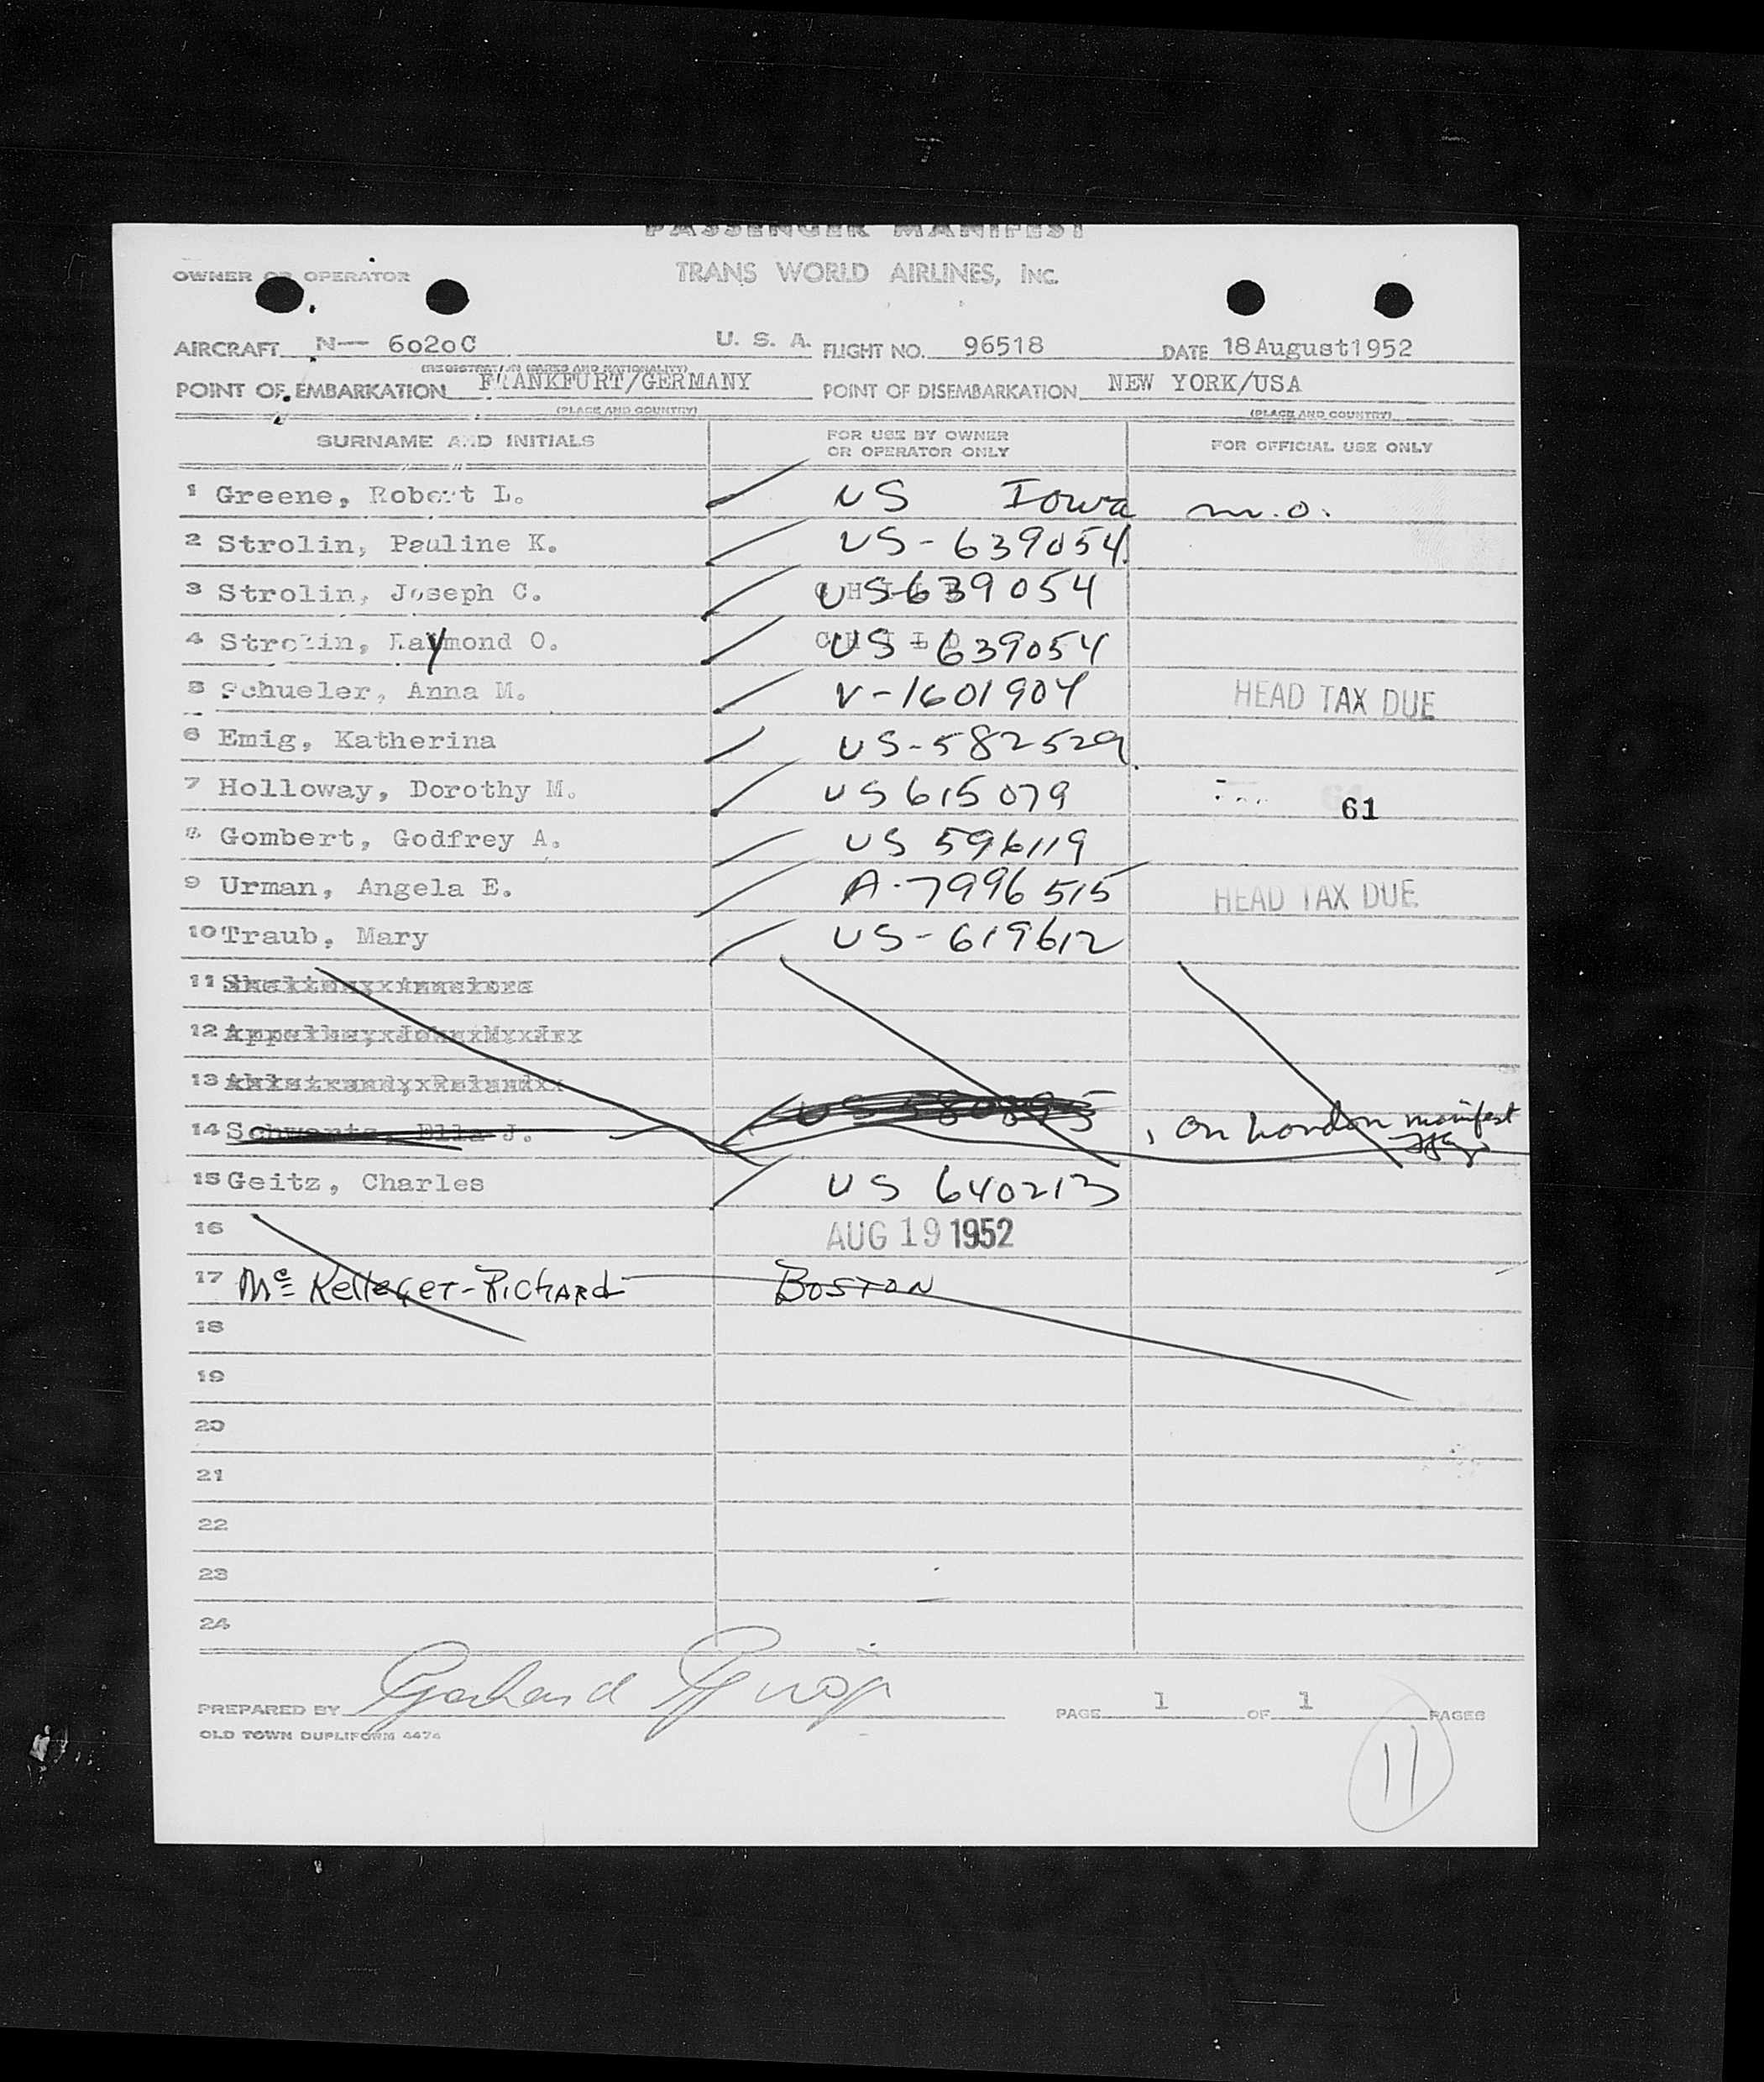 PASSENGER MANIFEST
OWNER OR OPERATOR TRANS WORLD AIRLINES, INC.
AIRCRAFT N— 6020C U. S. A. FLIGHT NO. 96518 DATE 18August1952
(REGISTRATION MARKS AND NATIONALITY)
POINT OF EMBARKATION FRANKFURT/GERMANY POINT OF DISEMBARKATION NEW YORK/USA
(PLACE AND COUNTRY) (PLACE AND COUNTRY)
SURNAME AND INITIALS FOR USE BY OWNER OR OPERATOR ONLY FOR OFFICIAL USE ONLY
1 Greene, Robert L. US Iowa m.o.
2 Strolin, Pauline K. US-639054
3 Strolin, Joseph C. US639054
4 Strolin, Raymond O. US-639054
5 Schueler, Anna M. V-1601904 HEAD TAX DUE
6 Emig, Katherina US-582529
7 Holloway, Dorothy M. US615079 61
8 Gombert, Godfrey A. US 596119
9 Urman, Angela E. A-7996515 HEAD TAX DUE
10 Traub, Mary US-619612
11
12
13
14 Schwartz, Ella J. US 580895 , on London manifest
15 Geitz, Charles US 640213
16 AUG 19 1952
17 Richard BOSTON
18
19
20
21
22
23
24
PREPARED BY PAGE 1 OF 1 PAGES
OLD TOWN DUPLIFORM 4474
11